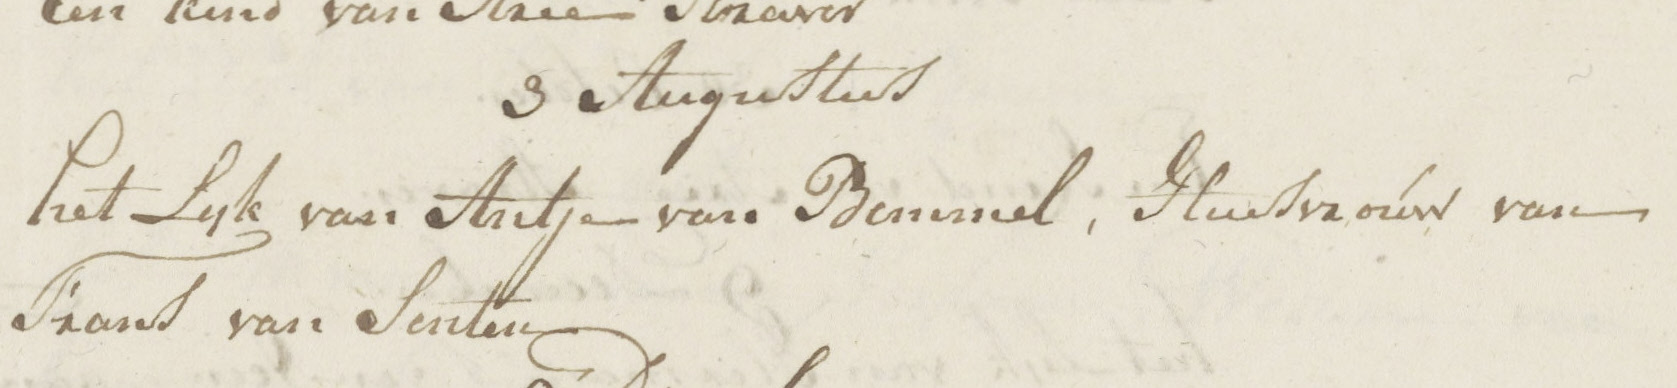 een kind van
3 Augustus
het Lyk van Antje van Bommel, Huisvrouw van
Frans van Senten